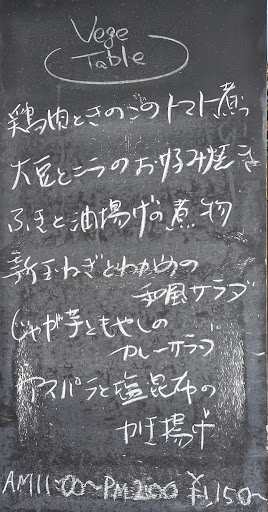 Vege
Table
鶏肉ときのこのトマト煮
大豆とニラのお好み焼き
ふきと油揚げの煮物
新玉ねぎとわかめの
和風サラダ
じゃが芋ともやしの
カレーサラダ
アスパラと塩昆布の
かき揚げ
AM11:00〜PM2:00 ¥1,150-